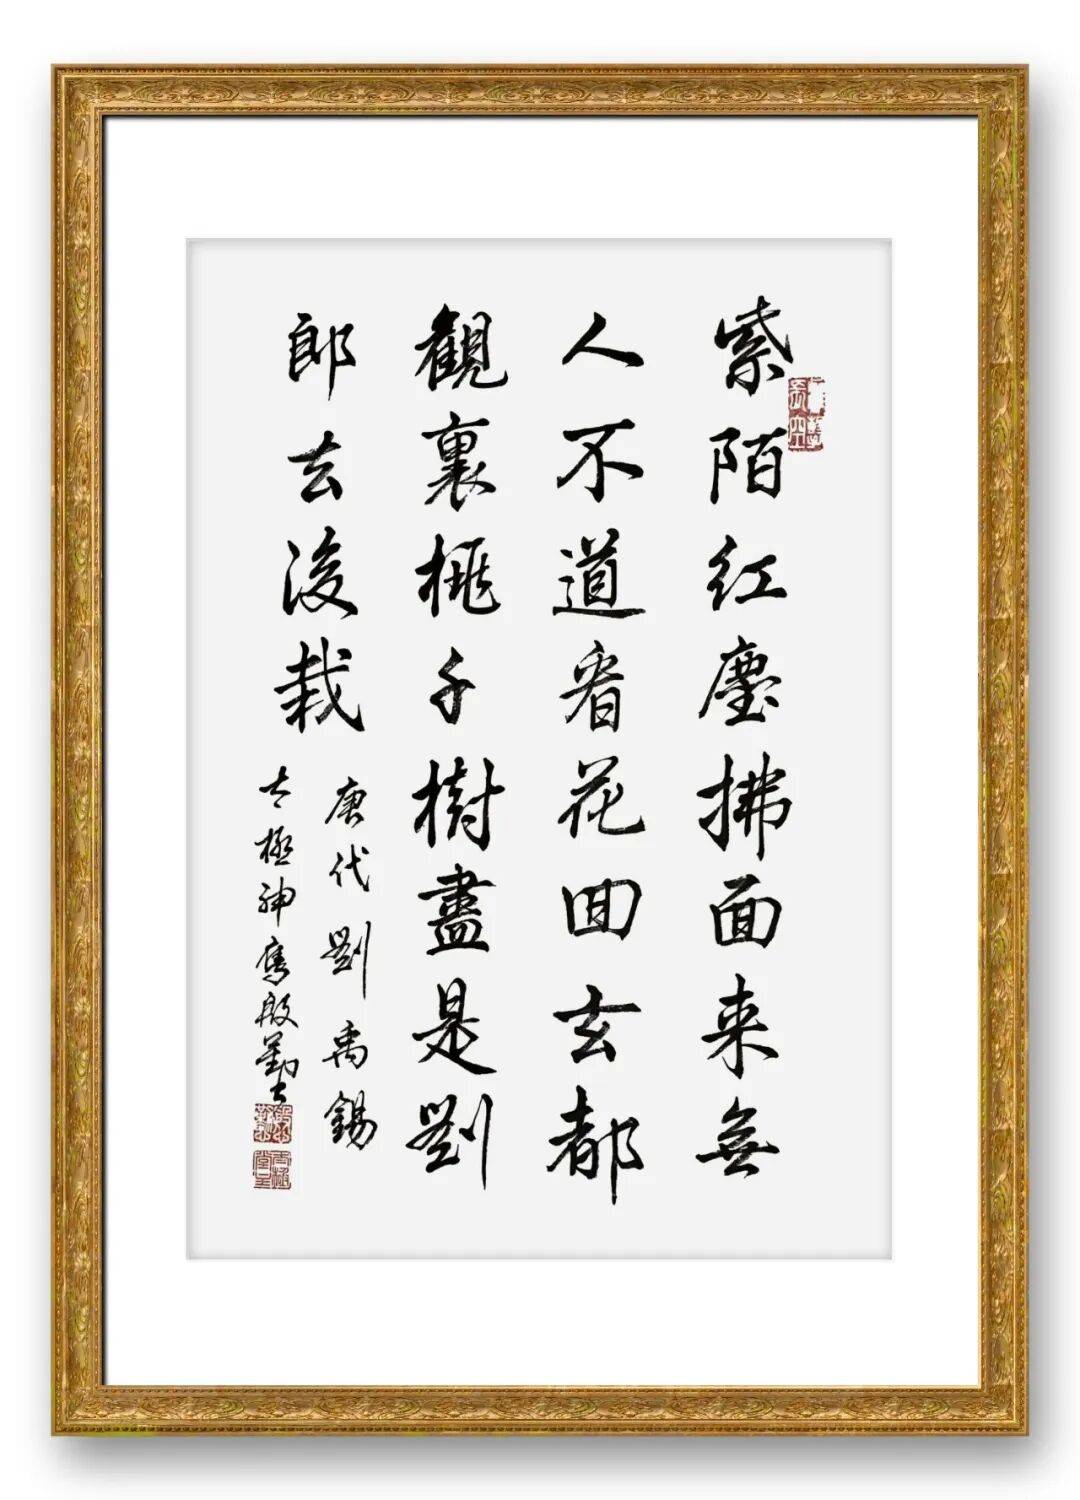 紫陌红塵拂面来無
人不道看花回玄都
觀裏桃千樹盡是劉
郎去後栽
唐代劉禹錫
太極神鹰殷勤士